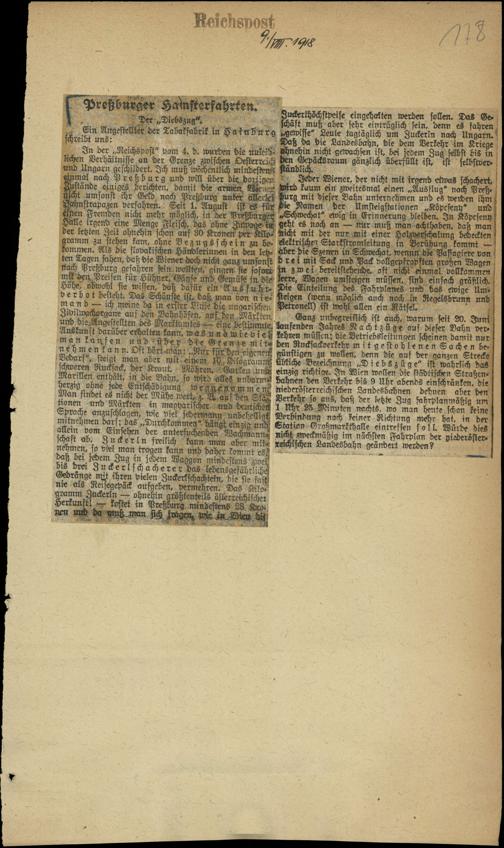 Reichspost
9/VIII. 1918
178
Preßburger Hamsterfahrten.
Der „Diebszug“.
Ein Angestellter der Tabakfabrik in Hainburg
schreibt uns:
In der „Reichspost“ vom 4. d. wurden die
lichen Verhältnisse an der Grenze zwischen Oesterreich
und Ungarn geschildert. Ich muß wöchentlich mindestens
einmal nach Preßburg und will über die dortigen
Zustände einiges berichten, damit die armen Wiener
nicht umsonst ihr Geld nach Preßburg unter allerlei
Bahnstrapazen verfahren. Seit 1. August ist es für
einen Fremden nicht mehr möglich, in der Preßburger
Halle irgend eine Menge Fleisch, das ohne Zuwage in
der letzten Zeit ohnehin schon auf 30 Kronen per Kilo
gramm zu stehen kam, ohne Bezugsschein zu be-
kommen. Als die slowakischen Händlerinnen in den letz-
ten Tagen sahen, daß die Wiener doch nicht ganz umsonst
nach Preßburg gefahren sein wollten, gingen sie sofort
mit den Preisen für Hühner, Gänse und Gemüse in die
Höhe, obwohl sie wissen, daß dafür ein Ausfuhr-
verbot besteht. Das Schönste ist, daß man von nie-
mand — ich meine da in erster Linie die ungarischen
Zivilwachorgane auf den Bahnhöfen, auf den Märkten
und die Angestellten des Marktamtes — eine bestimmte
Auskunft darüber erhalten kann, was und wieviel
man kaufen und über die Grenze mit-
nehmen kann. Oft hört man: „Nur für den eigenen
Bedarf“, steigt man aber mit einem 10 Kilogramm
schweren Rucksack, der Kraut, Möhren, Gurken und
Marillen enthält, in die Bahn, so wird alles unbarm-
herzig ohne jede Entschädigung weggenommen.
Man findet es nicht der Mühe wert, z. B. auf den Sta-
tionen und Märkten in magyarischer und deutscher
Sprache anzuschlagen, wie viel jedermann unbehelligt
mitnehmen darf; das „Durchkommen“ hängt einzig und
allein vom Einsehen der untersuchenden Wachmann-
schaft ab. Zuckerln freilich kann man aber mitnehmen,
so viel man tragen kann und daher kommt es,
daß bei jedem Zug in jedem Waggon mindestens zwei
bis drei Zuckerlschacherer das lebensgefährliche
Gedränge mit ihren vielen Zuckerlschachteln, die sie fast
nie als Reisegepäck aufgeben, vermehren. Das Kilo-
gramm Zuckerln — ohnehin größtenteils österreichischer
Herkunft — kostet in Preßburg mindestens 28 Kro-
nen und da muß man sich fragen, wie in Wien die
Zuckerlhöchstpreise eingehalten werden sollen. Das Ge-
schäft muß aber sehr einträglich sein, denn es fahren
„gewisse“ Leute tagtäglich um Zuckerln nach Ungarn.
Daß da die Landesbahn, die dem Verkehr im Kriege
ohnehin nicht gewachsen ist, bei jedem Zug selbst bis in
den Gepäcksraum gänzlich überfüllt ist, ist selbstver-
ständlich.
Jeder Wiener, der nicht mit irgend etwas schachert,
wird kaum ein zweitesmal einen „Ausflug“ nach Preß-
burg mit dieser Bahn unternehmen und es werden ihm
die Namen der Umsteigestationen „Köpfering“ und
„Schwechat“ ewig in Erinnerung bleiben. In Köpfering
geht es noch an — nur muß man achthaben, daß man
nicht mit der nur mit einer Holzverschalung bedeckten
elektrischen Starkstromleitung in Berührung kommt —
aber die Szenen in Schwechat, wenn die Passagiere von
drei mit Sack und Pack vollgepfropften großen Wagen
in zwei bereitstehende, oft nicht einmal vollkommen
leere, Wagen umsteigen müssen, sind einfach gräßlich.
Die Einteilung des Fahrplanes und das ewige Um-
steigen (wenn möglich auch noch in Regelsbrunn und
Petronell) ist wohl allen ein Rätsel.
Ganz unbegreiflich ist auch, warum seit 20. Juni
laufenden Jahres Nachtzüge auf dieser Bahn ver-
kehren müssen; die Betriebsleitungen scheinen damit nur
den Rucksackverkehr mit gestohlenen Sachen be-
günstigen zu wollen, denn die auf der ganzen Strecke
übliche Bezeichnung „Diebszüge“ ist wahrlich das
einzig richtige. In Wien wollen die städtischen Straßen-
bahnen den Verkehr bis 9 Uhr abends einschränken, die
niederösterreichischen Landesbahnen dehnen aber den
Verkehr so aus, daß der letzte Zug fahrplanmäßig um
1 Uhr 25 Minuten nachts, wo man heute schon keine
Verbindung nach keiner Richtung mehr hat, in der
Station Großmarkthalle eintreffen soll. Würde dies
nicht zweckmäßig im nächsten Fahrplan der niederöster-
reichischen Landesbahn geändert werden?